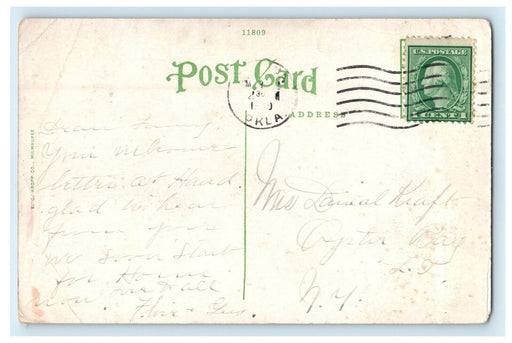 11809
POST CARD
U.S. POSTAGE
1 CENT 1
OKLA.
ADDRESS
E. C. KROPP CO., MILWAUKEE
Dear
Your welcome
letter at Hand
glad to hear
from you
we soon start
for Home
Love to all
Mrs Danial Kraft
Oyster Bay
L. I.
N. Y.